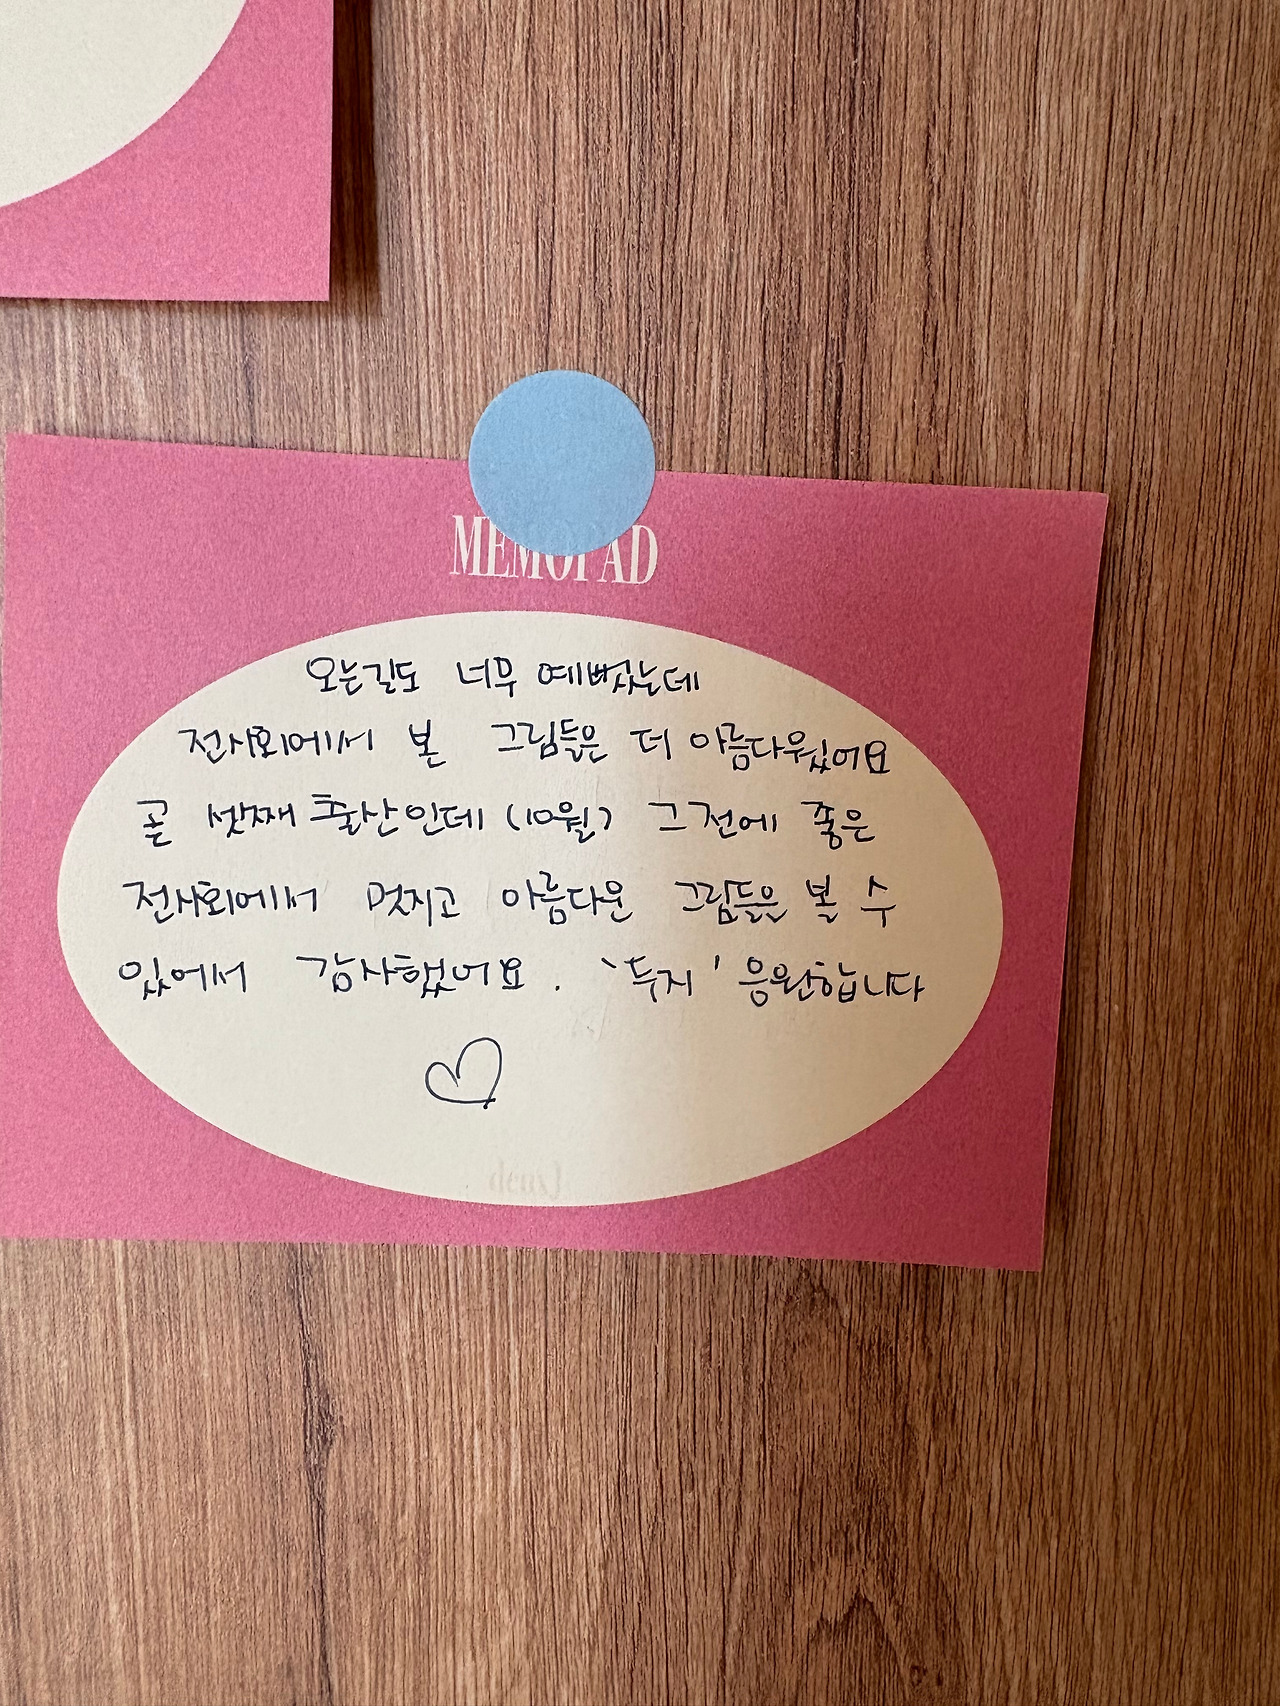 MEMOPAD
오는길도 너무 예뻤는데
전시회에서 본 그림들은 더 아름다웠어요
곧 셋째 출산인데 (10월) 그전에 좋은
전시회에서 멋지고 아름다운 그림들을 볼 수
있어서 감사했어요. '두지' 응원합니다
♡